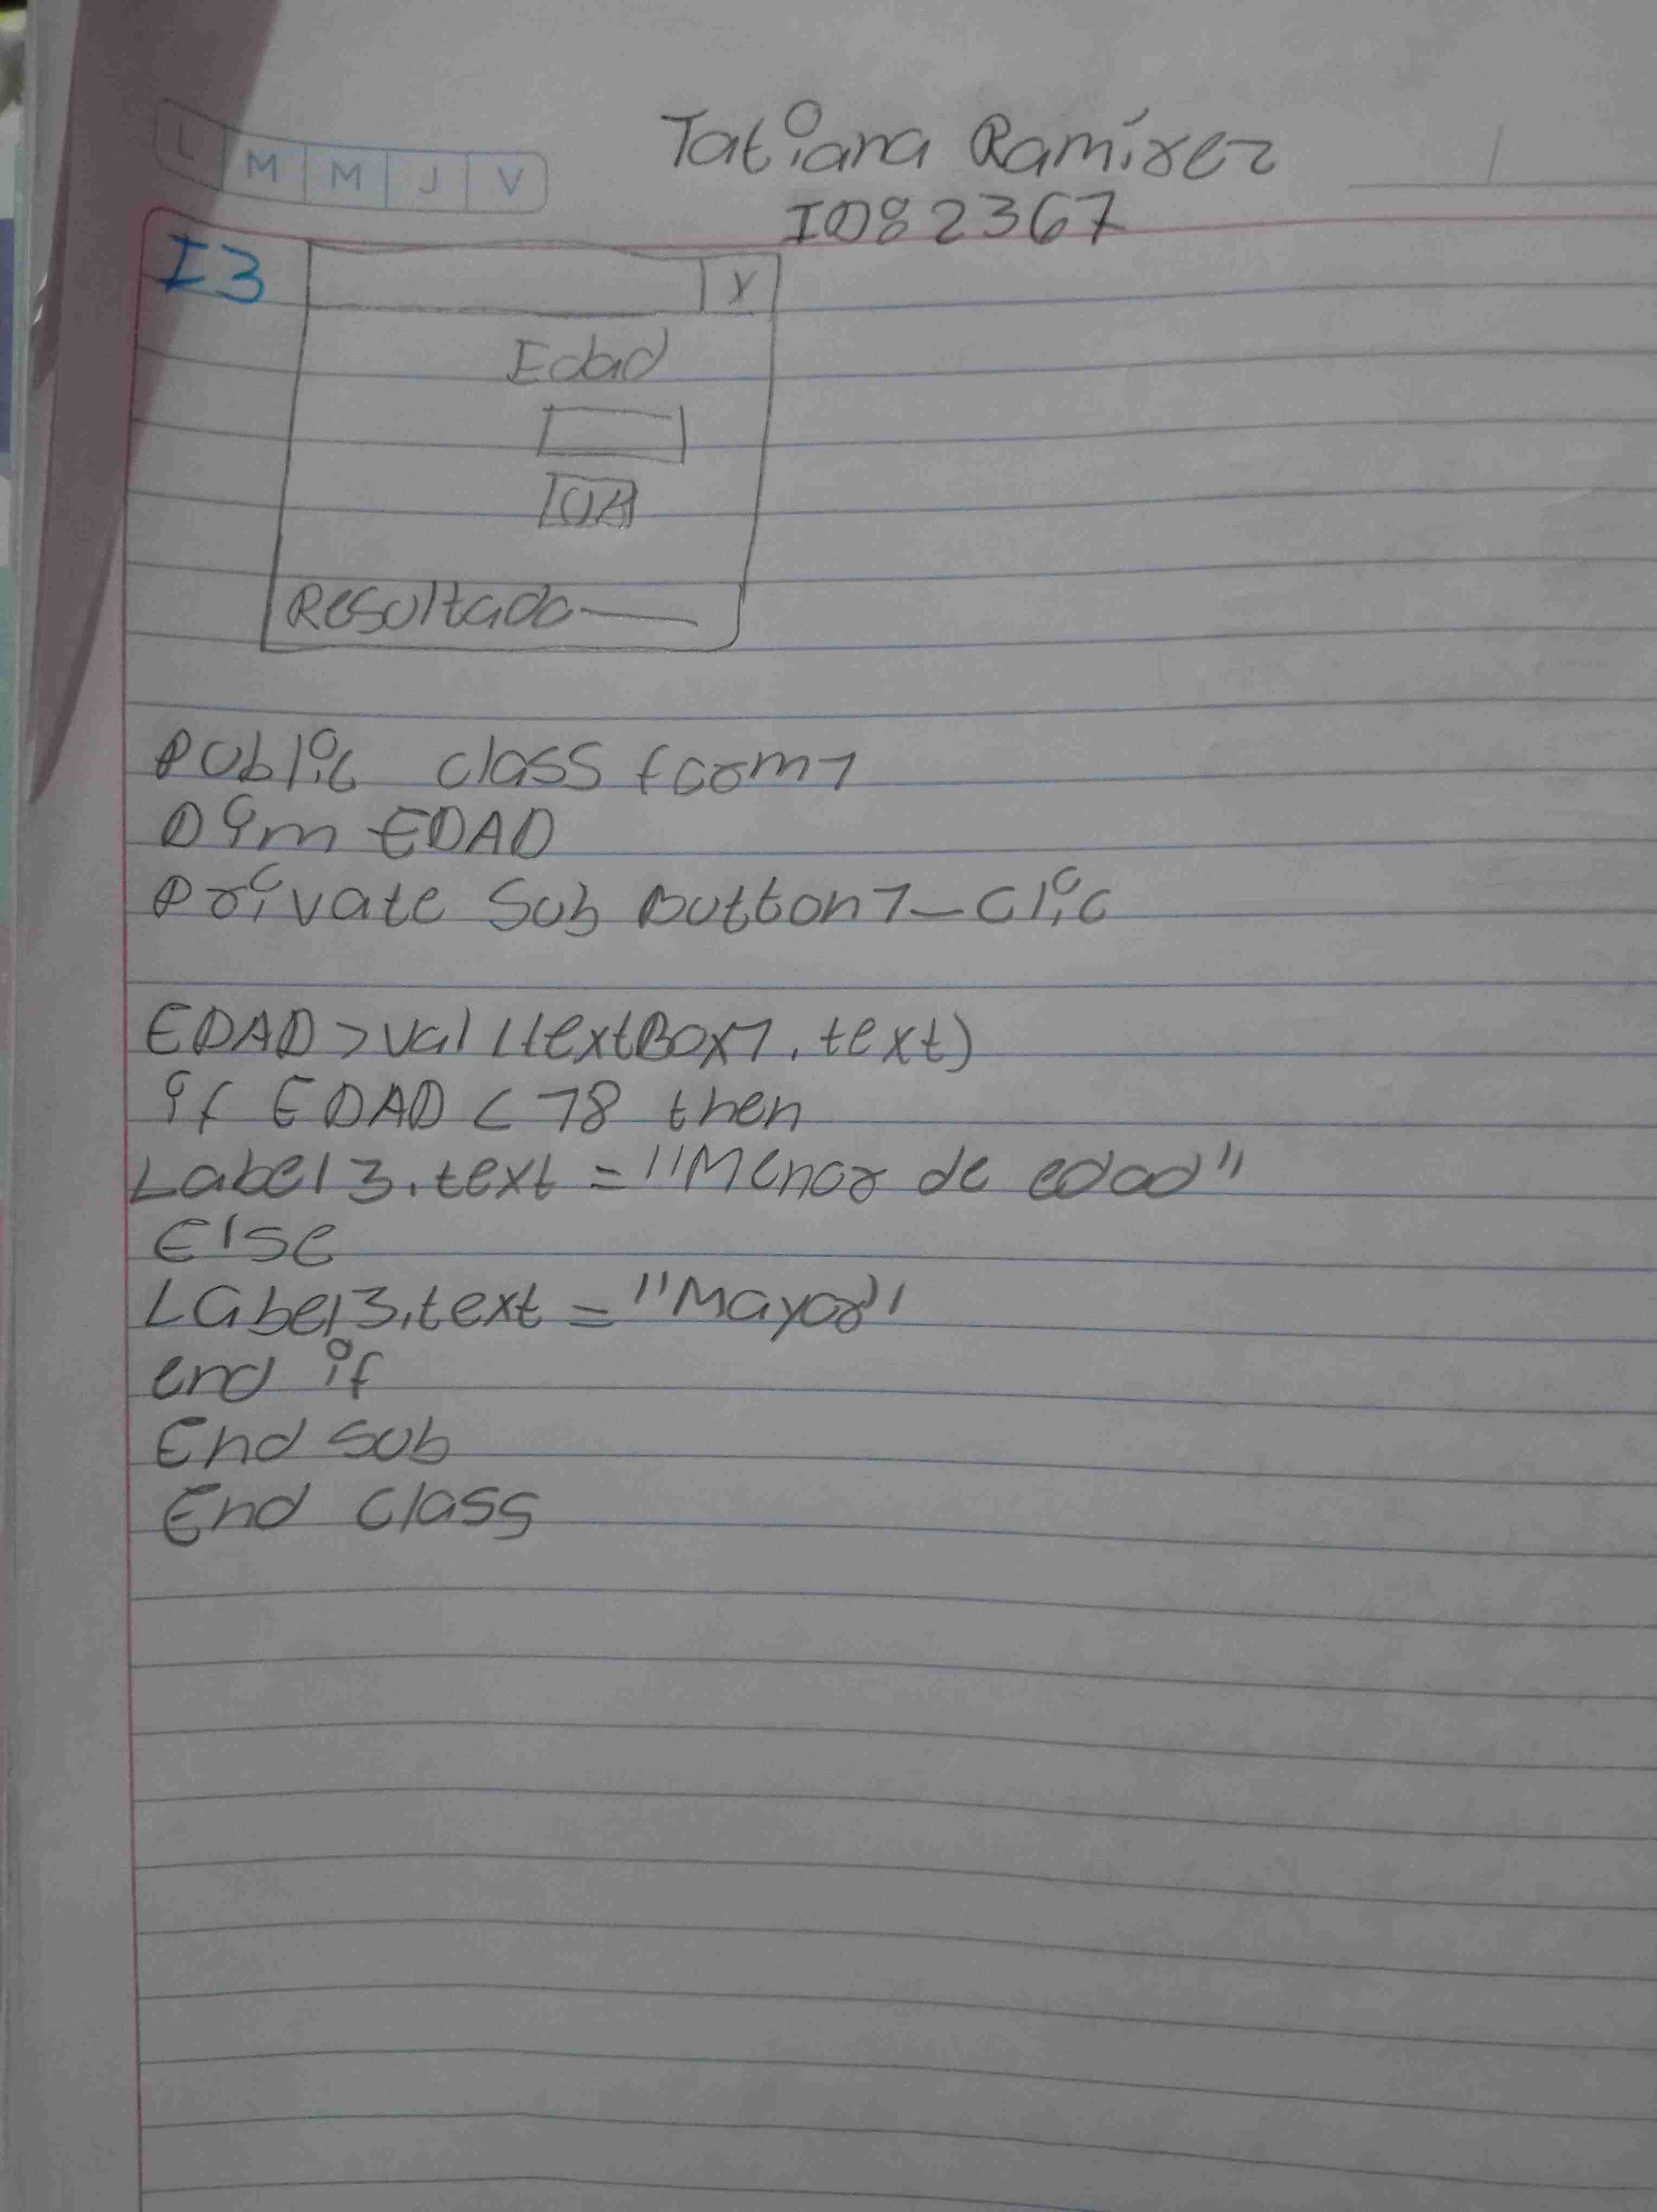 L M M J V
Tatiana Ramírez
ID82367
I3
X
Edad
OK
Resultado
Public class form1
Dim EDAD
Private Sub Button1_Clic
EDAD > val (textBox1.text)
if EDAD < 18 then
Label3.text = "Menor de edad"
Else
Label3.text = "Mayor"
end if
End sub
End class